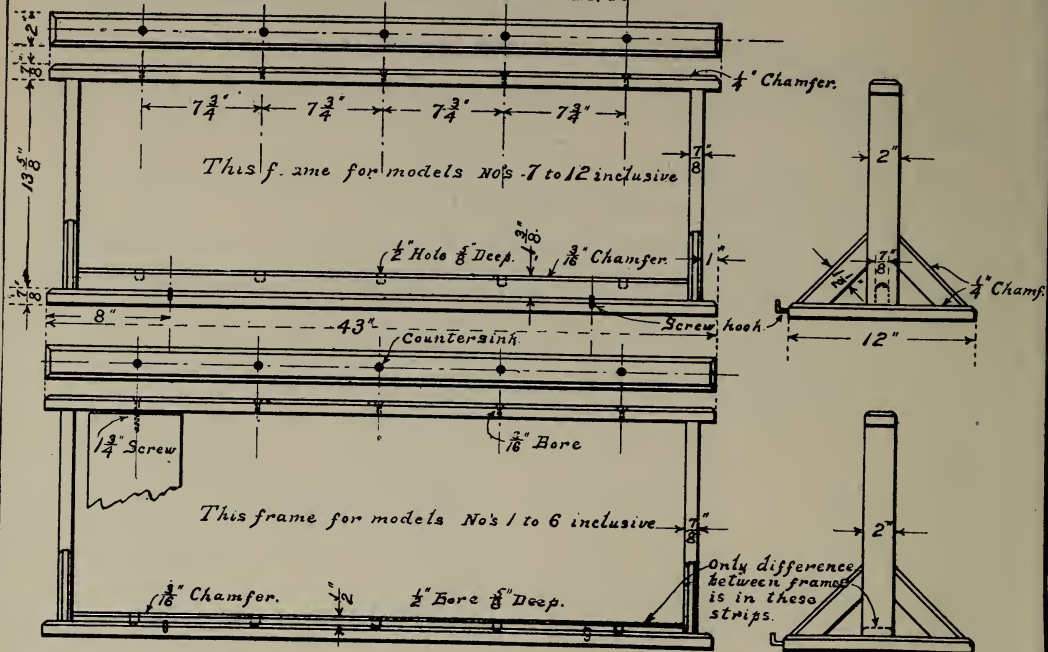 2"
7/8"
1/4" Chamfer.
7 3/4" 7 3/4" 7 3/4" 7 3/4"
13 5/8"
7/8"
2"
This f. ame for models No's -7 to 12 inclusive
1/2" Hole 5/8" Deep.
3/16" Chamfer.
1"
7/8"
1/4" Chamf.
7/8"
8"
43"
Screw hook.
12"
Countersink.
1 3/4" Screw
3/16" Bore
This frame for models No's 1 to 6 inclusive
7/8"
2"
Only difference
between frames
is in these
strips.
3/16" Chamfer.
1/2"
1/2" Bore 5/8" Deep.